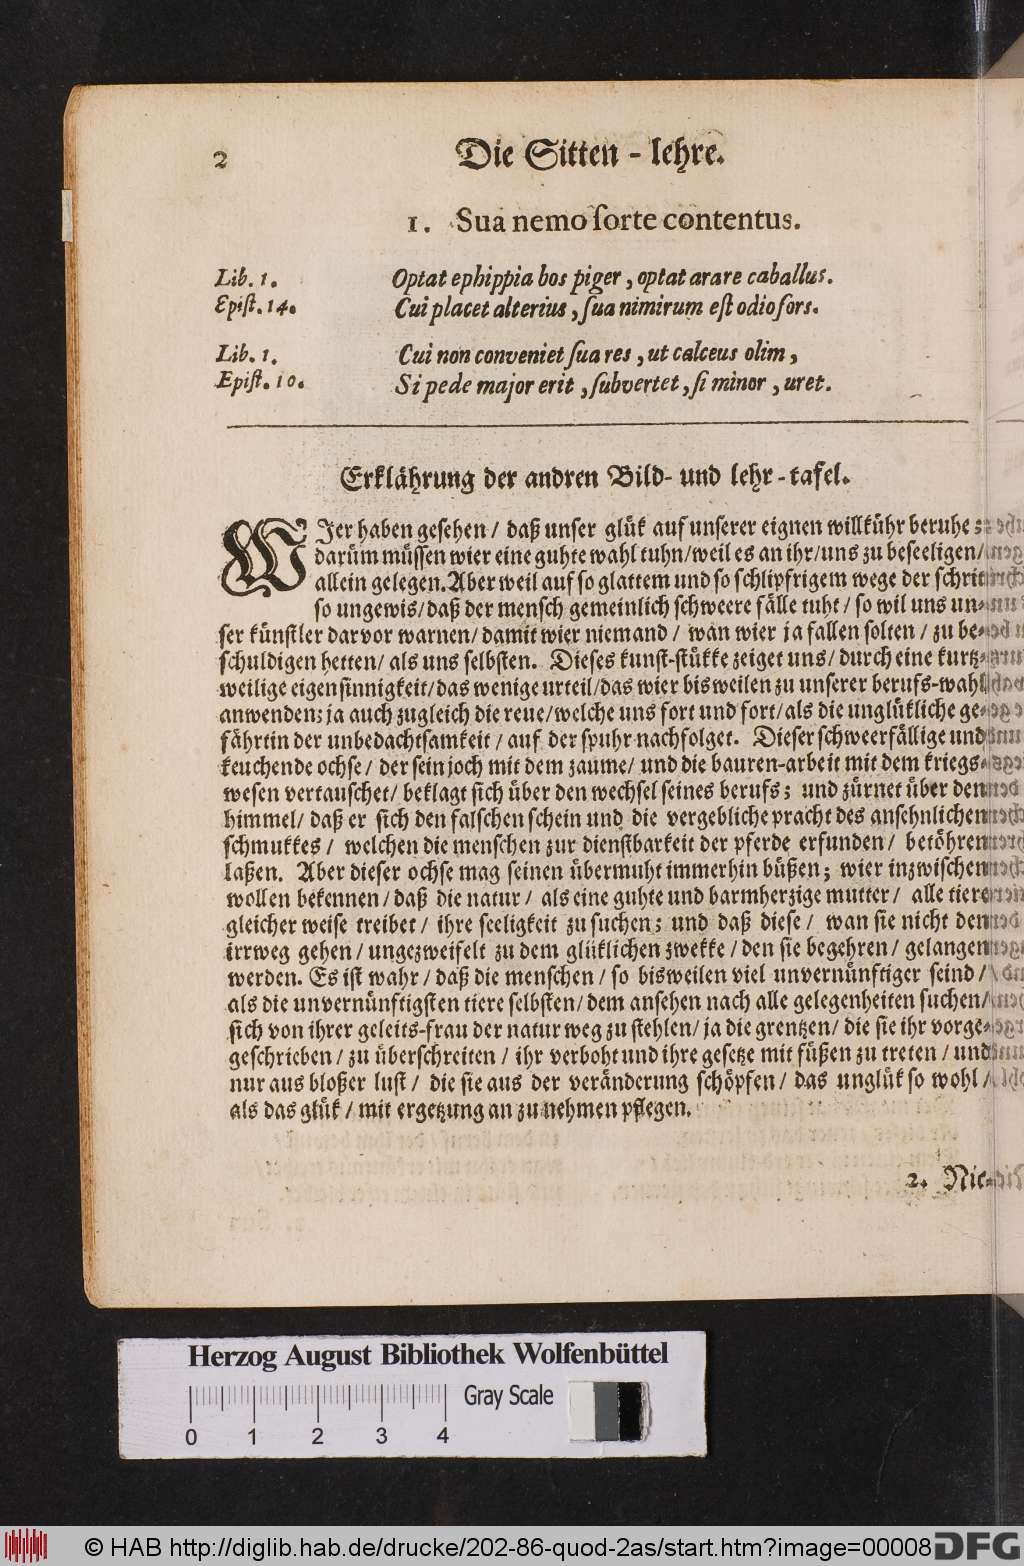 2 Die Sitten-lehre.
1. Sua nemo ſorte contentus.
Lib. 1. Optat ephippia bos piger, optat arare caballus.
Epiſt. 14. Cui placet alterius, ſua nimirum eſt odio ſors.
Lib. 1. Cui non conveniet ſua res, ut calceus olim,
Epiſt. 10. Si pede major erit, ſubvertet, ſi minor, uret.
Erklährung der andren Bild- und lehr-tafel.
WJer haben geſehen / daß unſer glük auf unſerer eignen willkühr beruhe;
darüm müſſen wier eine guhte wahl tuhn/weil es an ihr/uns zu beſeeligen/
allein gelegen. Aber weil auf ſo glattem und ſo ſchlipfrigem wege der ſchrit
ſo ungewis/daß der menſch gemeinlich ſchweere fälle tuht/ſo wil uns un-
ſer künſtler darvor warnen/damit wier niemand / wan wier ja fallen ſolten / zu be-
ſchuldigen hetten/ als uns ſelbſten. Dieſes kunſt-ſtükke zeiget uns/ durch eine kurtz-
weilige eigenſinnigkeit/das wenige urteil/das wier bisweilen zu unſerer berufs-wahl
anwenden; ja auch zugleich die reue/welche uns fort und fort/als die unglükliche ge-
fährtin der unbedachtſamkeit / auf der ſpuhr nachfolget. Dieſer ſchweerfällige und
keuchende ochſe / der ſein joch mit dem zaume/ und die bauren-arbeit mit dem kriegs-
weſen vertauſchet/ beklagt ſich über den wechſel ſeines berufs; und zürnet über den
himmel/ daß er ſich den falſchen ſchein und die vergebliche pracht des anſehnlichen
ſchmukkes / welchen die menſchen zur dienſtbarkeit der pferde erfunden / betöhren
laßen. Aber dieſer ochſe mag ſeinen übermuht immerhin büßen; wier inzwiſchen
wollen bekennen / daß die natur / als eine guhte und barmherzige mutter / alle tiere
gleicher weiſe treibet / ihre ſeeligkeit zu ſuchen; und daß dieſe / wan ſie nicht den
irrweg gehen / ungezweifelt zu dem glüklichen zwekke / den ſie begehren / gelangen
werden. Es iſt wahr / daß die menſchen / ſo bisweilen viel unvernünftiger ſeind /
als die unvernünftigſten tiere ſelbſten/ dem anſehen nach alle gelegenheiten ſuchen/
ſich von ihrer geleits-frau der natur weg zu ſtehlen/ ja die grentzen/ die ſie ihr vorge-
geſchrieben / zu überſchreiten / ihr verboht und ihre geſetze mit füßen zu treten / und
nur aus bloßer luſt / die ſie aus der veränderung ſchöpfen / das unglük ſo wohl /
als das glük / mit ergetzung an zu nehmen pflegen.
2. Nie-
Herzog August Bibliothek Wolfenbüttel
Gray Scale
0 1 2 3 4
© HAB http://diglib.hab.de/drucke/202-86-quod-2as/start.htm?image=00008 DFG